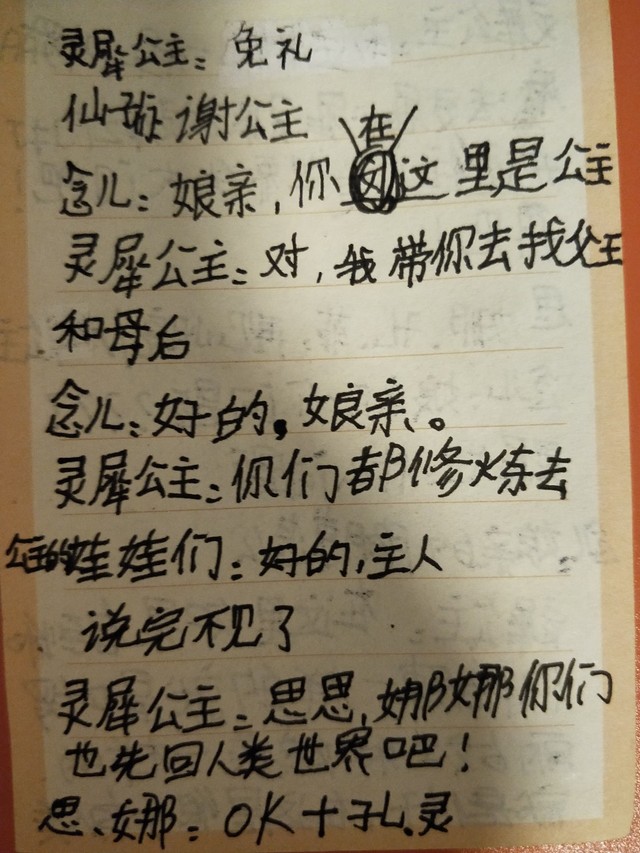 灵犀公主：免礼
仙族谢公主
念儿：娘亲，你在这里是公主
灵犀公主：对，我带你去找父王
和母后
念儿：好的，娘亲。
灵犀公主：你们都修炼去
公主的娃娃们：好的，主人
说完不见了
灵犀公主：思思，娜娜你们
也先回人类世界吧！
思、娜：OK十孔.灵